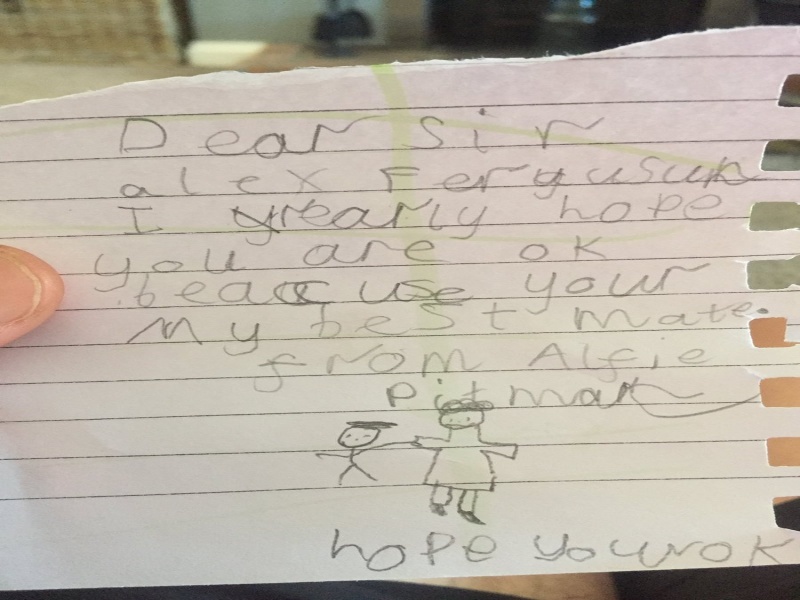 Dear Sir
alex Fergusun
I yrearly hope
you are ok
beaccuse your
My best mate.
from Alfie
Pitman
hope youwrok